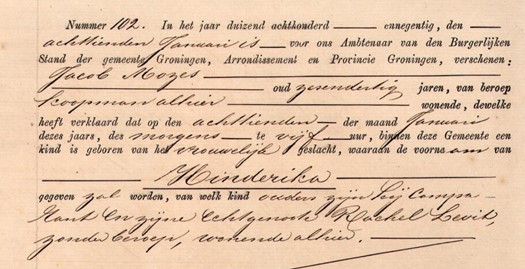 Nummer 102. In het jaar duizend achthonderd — ennegentig, den
achttienden Januari is — voor ons Ambtenaar van den Burgerlijken
Stand der gemeente Groningen, Arrondissement en Provincie Groningen, verschenen:
Jacob Mozes
oud zesendertig jaren, van beroep
koopman alhier — wonende, dewelke
heeft verklaard dat op den achttienden — der maand Januari
dezes jaars, des morgens — te vijf — uur, binnen deze Gemeente een
kind is geboren van het vrouwelijk geslacht, waaraan de voornaam van
— Hinderika —
gegeven zal worden, van welk kind ouders zijn hij Compa-
rant En zijne Echtgenote Rachel Levit,
zonder beroep, wonende alhier. —